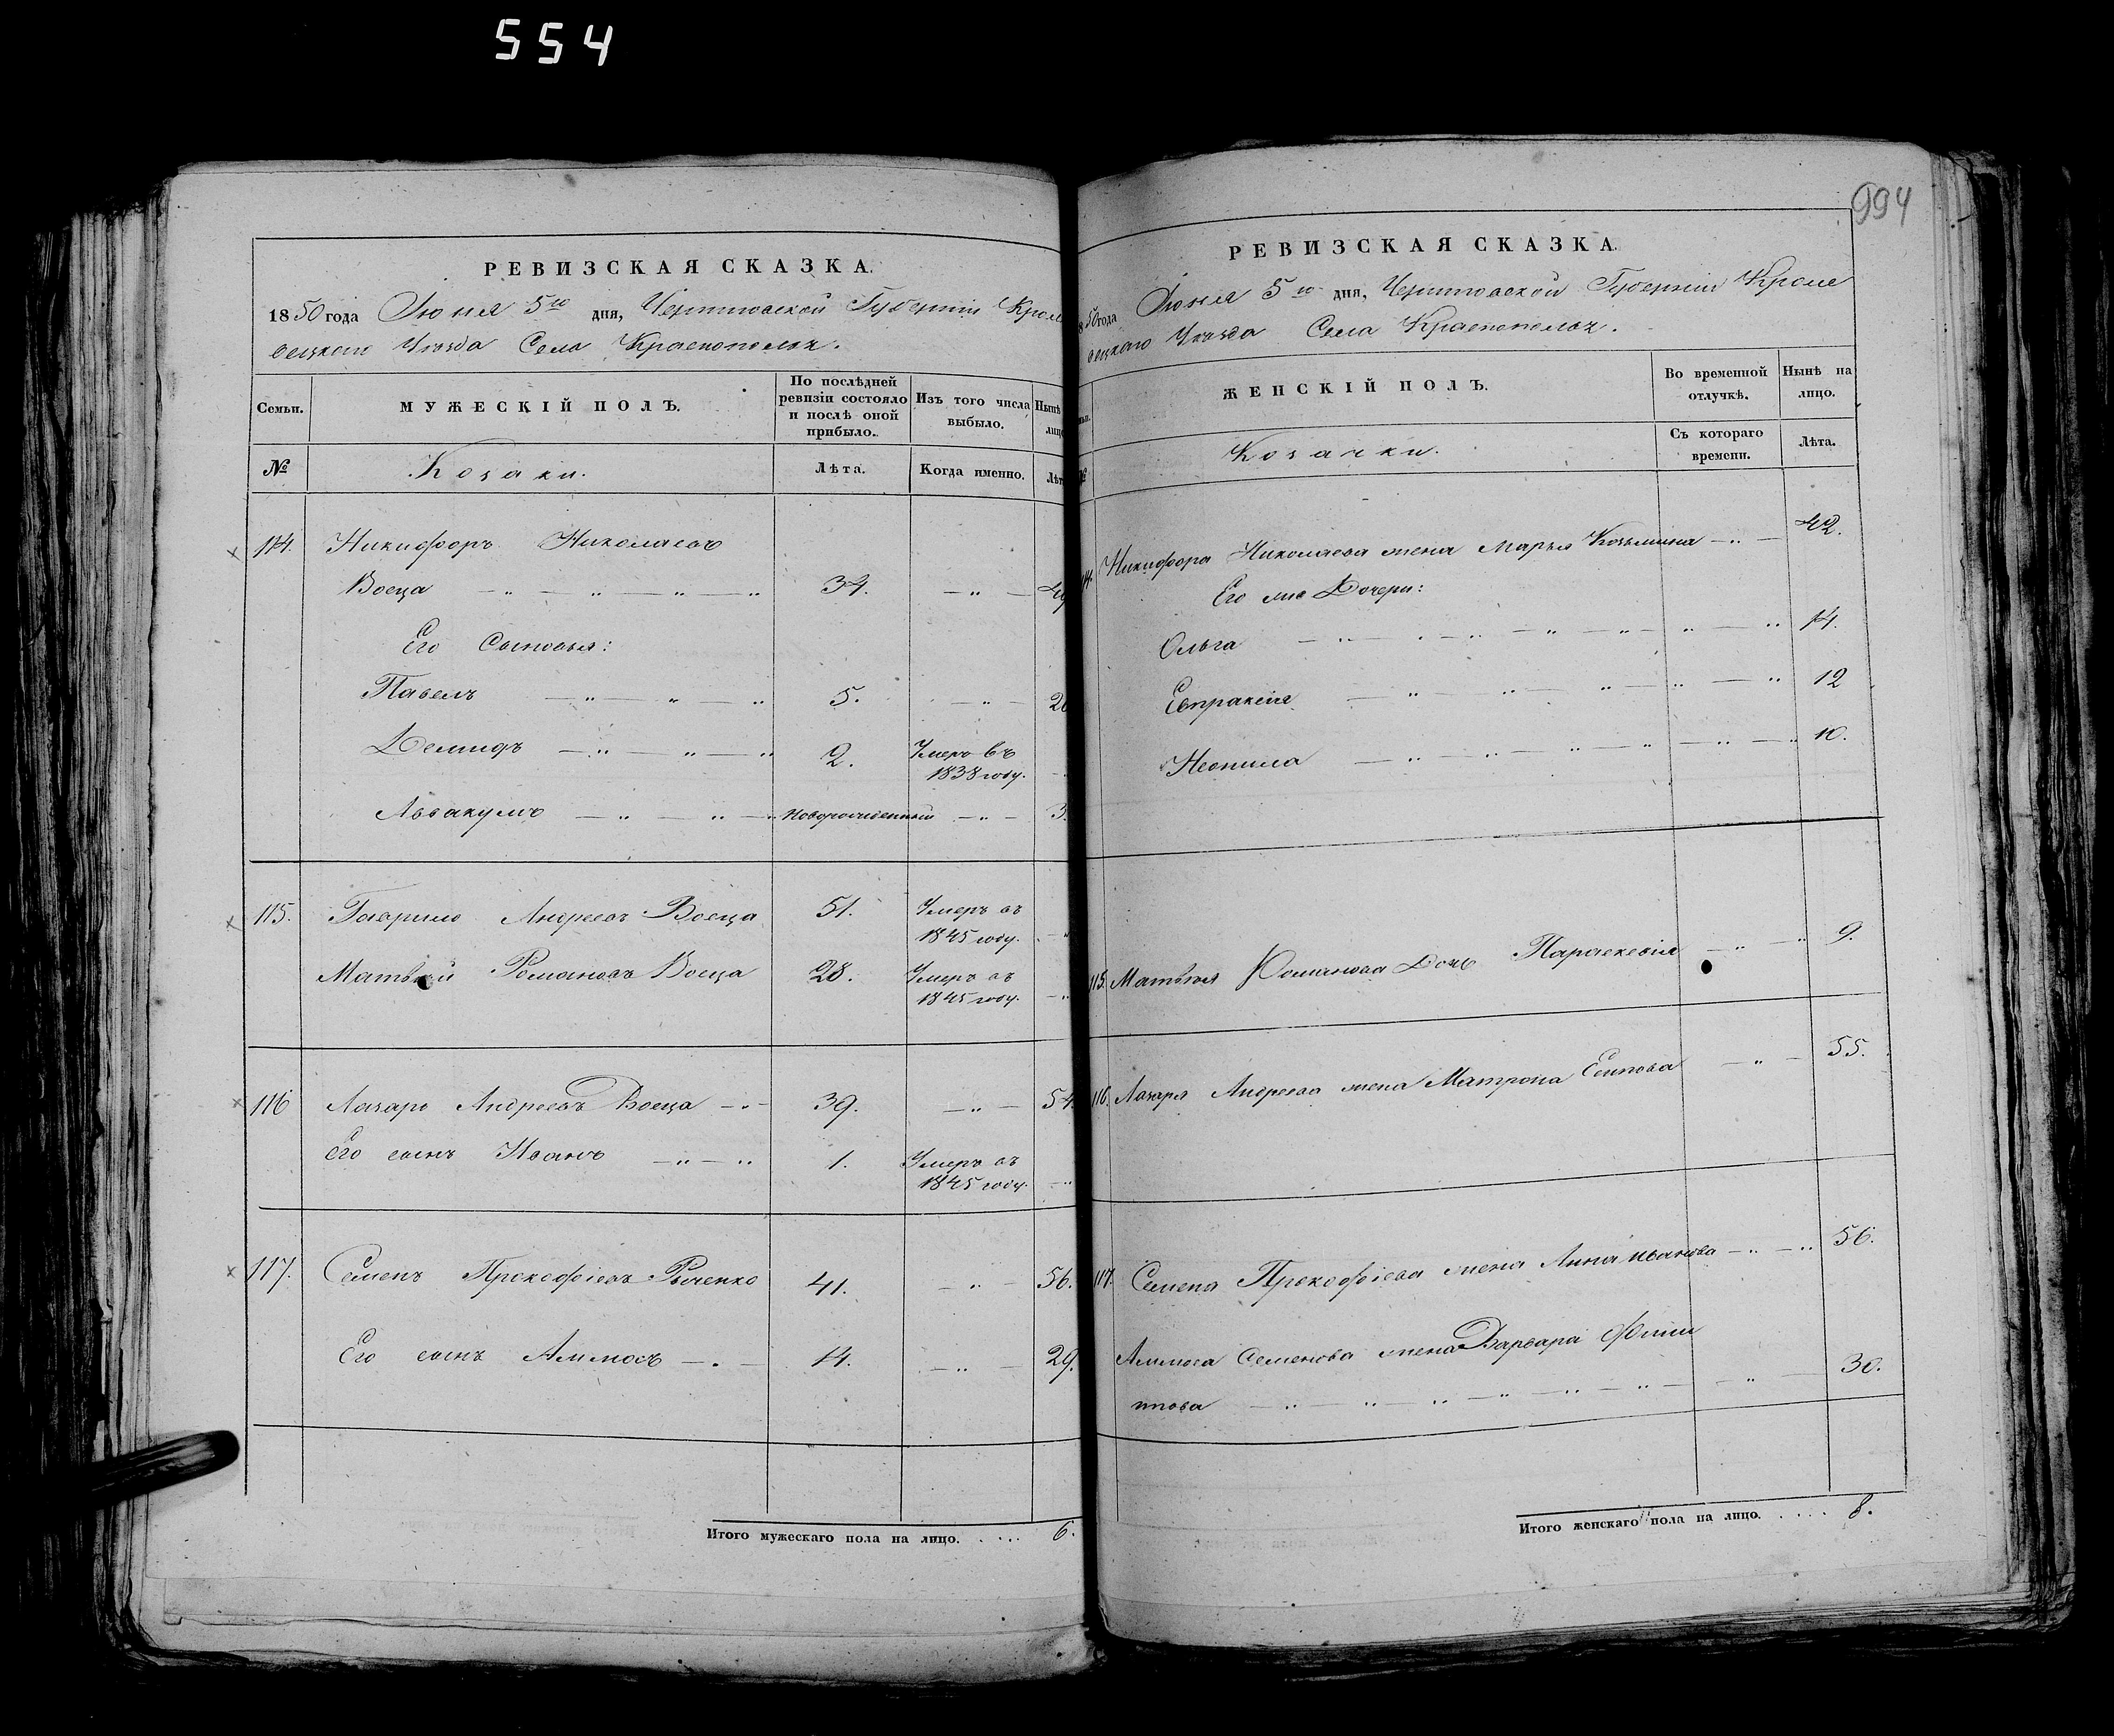 554
994
РЕВИЗСКАЯ СКАЗКА.
1850 года Іюня 5го дня, Черниговской Губерніи Кроле
вецкаго Уѣзда Села Краснополья.
Семьи.
МУЖЕСКІЙ ПОЛЪ.
По послѣдней ревизіи состояло и послѣ оной прибыло.
Изъ того числа выбыло.
Нынѣ
лицо
№
Козаки.
Лѣта.
Когда именно.
Лѣт
114. Никифоръ Николаевъ
Воеца 34.
Его Сыновья:
Павелъ 5.
Демидъ 2. Умеръ въ
1838 году.
Аввакумъ новорожденный 3.
115. Гаврило Андреевъ Воеца 51. Умеръ въ
1845 году.
Матвѣй Романовъ Воеца 28. Умеръ въ
1845 году.
116 Лазарь Андреевъ Воеца 39. 54.
Его сынъ Иванъ 1. Умеръ въ
1845 году.
117. Семенъ Прокофіевъ 41. 56.
Его сынъ Аммосъ 14. 29.
Итого мужескаго пола на лицо. 6.
РЕВИЗСКАЯ СКАЗКА.
1850 года Іюня 5го дня, Черниговской Губерніи Кроле
вецкаго Уѣзда Села Краснополья.
ЖЕНСКІЙ ПОЛЪ.
Во временной отлучкѣ.
Нынѣ на лицо.
№
Козачки.
Съ котораго времени.
Лѣта.
114. Никифора Николаева жена Марья Козьмина 42.
Его же Дочери:
Ольга 14.
Евпраксія 12
Неонила 10.
115. Матвѣя Романова Дочь Параскевія 9.
116. Лазаря Андреева жена Матрона Есипова 55.
117. Семена Прокофіева жена Анна Иванова 56.
Аммоса Семенова жена Варвара Фили
пова 30.
Итого женскаго пола на лицо. 8.